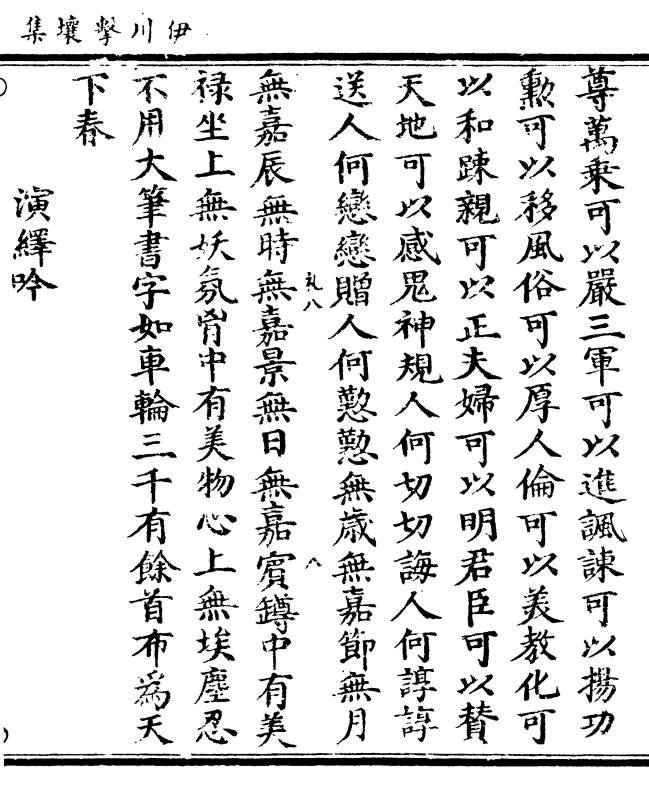 伊川擊壤集
尊萬乗可以嚴三軍可以進諷諫可以揚功
勲可以移風俗可以厚人倫可以美教化可
以和踈親可以正夫婦可以明君臣可以賛
天地可以感鬼神規人何切切誨人何諄諄
送人何戀戀贈人何懃懃無歳無嘉節無月
礼八
八
無嘉辰無時無嘉景無日無嘉賔罇中有美
禄坐上無妖氛胷中有美物心上無埃塵忍
不用大筆書字如車輪三千有餘首布爲天
下春
演繹吟